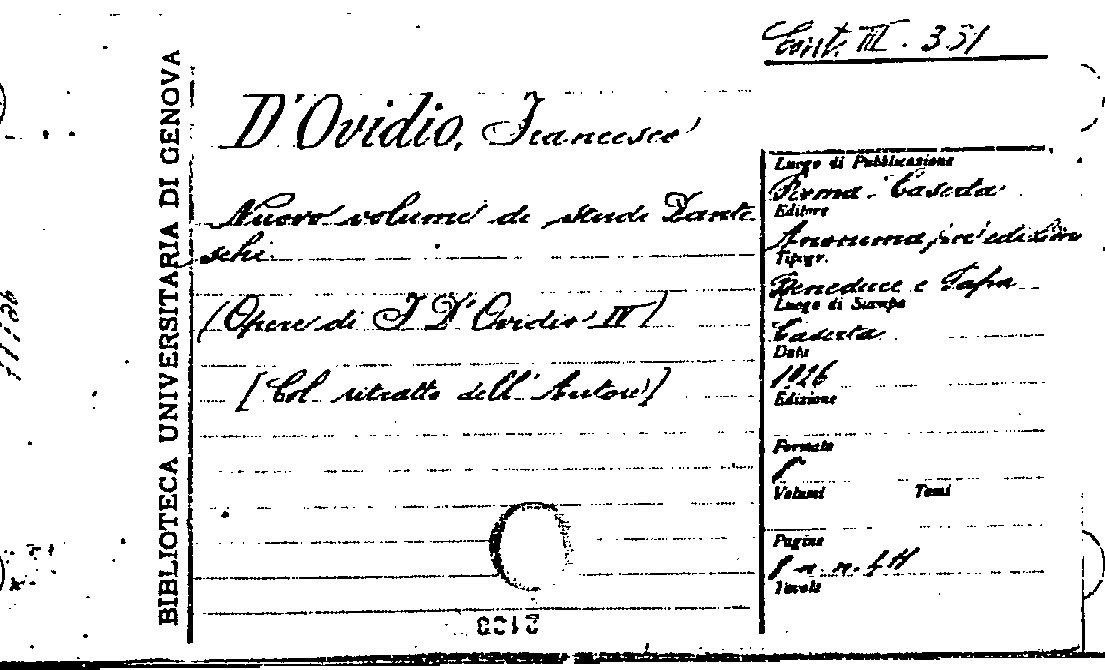 BIBLIOTECA UNIVERSITARIA DI GENOVA
Cont. III. 351
D'Ovidio, Francesco
Nuovo volume di studi Dante
schi.
(Opere di F D'Ovidio IV)
[Col ritratto dell'Autore]
Luogo di Pubblicazione
Roma. Caserta
Editore
Anonima per edizioni
Tipogr.
Beneduce e Papa
Luogo di Stampa
Caserta
Data
1926
Edizione
Formato
Volumi Tomi
Pagine
Tavole